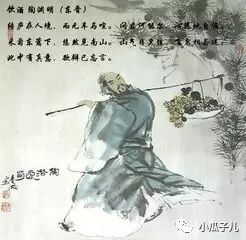 饮酒 陶渊明（东晋）
结庐在人境，而无车马喧。问君何能尔，心远地自偏。
采菊东篱下，悠然见南山。山气日夕佳，飞鸟相与还。
此中有真意，欲辩已忘言。
小瓜子儿